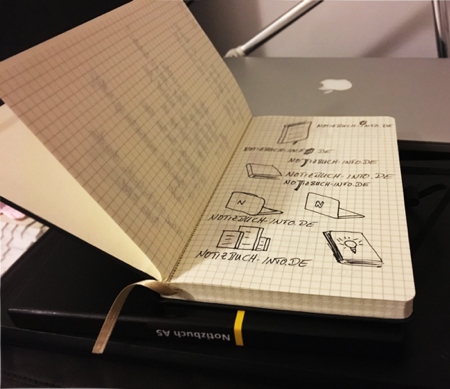 NOTIZBUCH.INFO.DE
NOTIZBUCH-INFO.DE
NOTIZBUCH-INFO.DE
NOTIZBUCH-INFO.DE
NOTIZBUCH-INFO.DE
NOTIZBUCH-INFO.DE
NOTIZBUCH-INFO.DE
Notizbuch A5